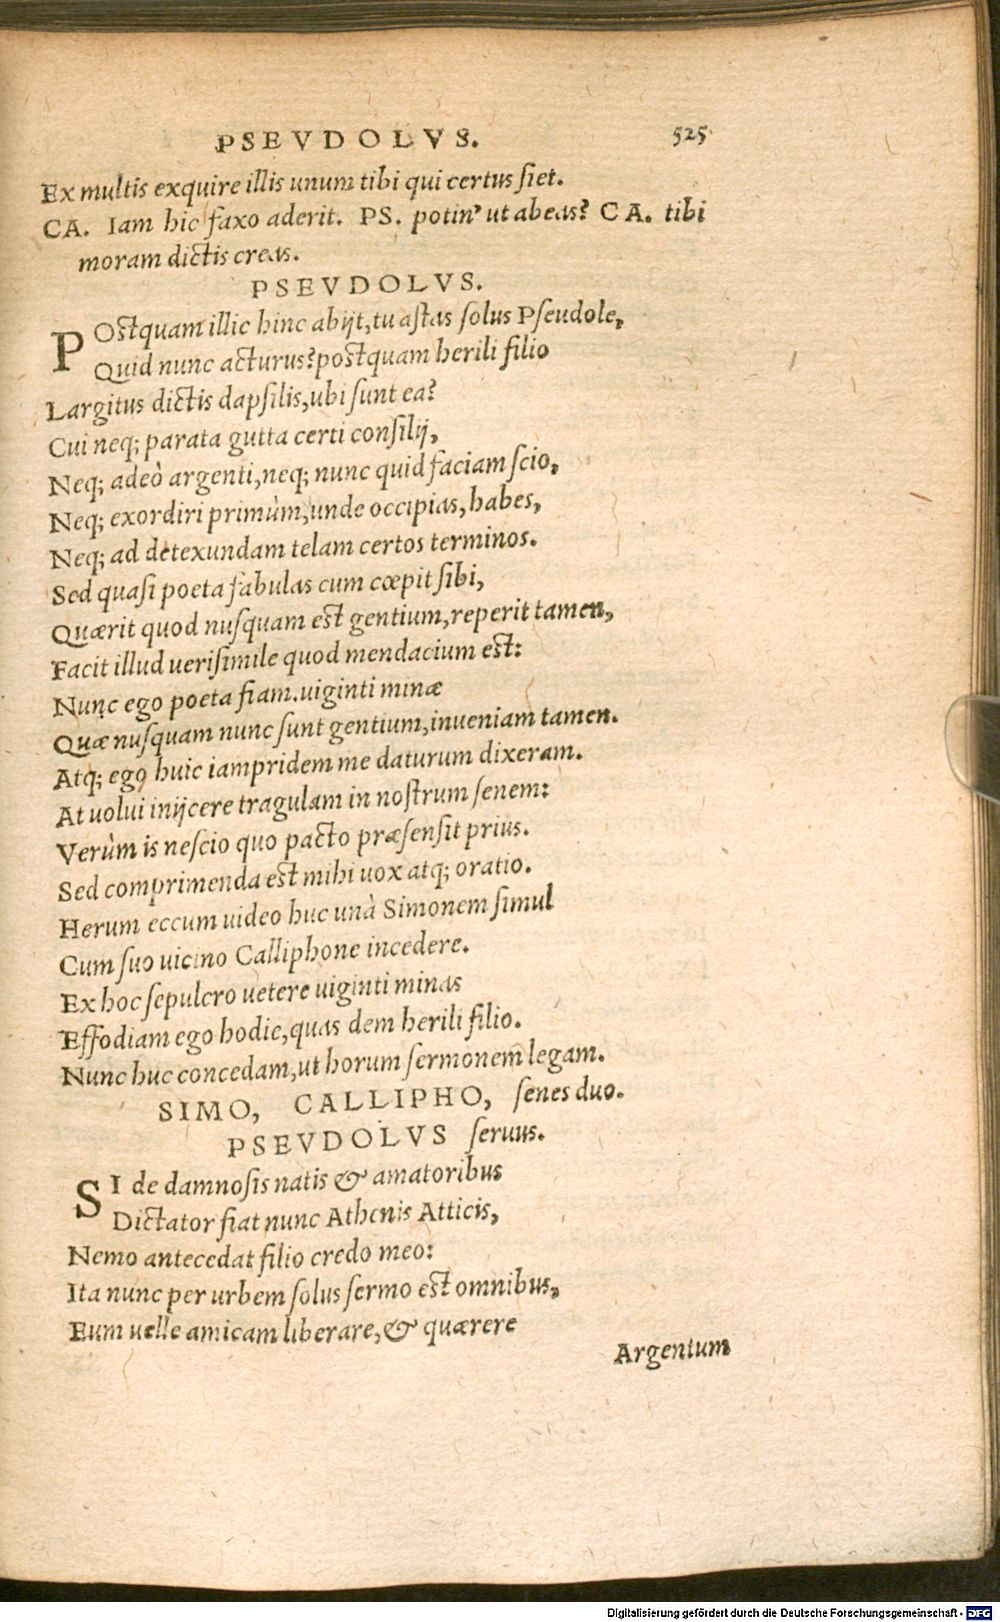 PSEVDOLVS. 525
Ex multis exquire illis unum tibi qui certus ſiet.
CA. Iam hic faxo aderit. PS. potin' ut abeas? CA. tibi
moram dictis creas.
PSEVDOLVS.
POſtquam illic hinc abijt, tu aſtas ſolus Pſeudole,
Quid nunc acturus? poſtquam herili filio
Largitus dictis dapſilis, ubi ſunt ea?
Cui neq; parata gutta certi conſilij,
Neq; adeò argenti, neq; nunc quid faciam ſcio,
Neq; exordiri primùm, unde occipias, habes,
Neq; ad detexundam telam certos terminos.
Sed quaſi poeta fabulas cum cœpit ſibi,
Quærit quod nuſquam eſt gentium, reperit tamen,
Facit illud ueriſimile quod mendacium eſt:
Nunc ego poeta fiam. uiginti minæ
Quæ nuſquam nunc ſunt gentium, inueniam tamen.
Atq; ego huic iampridem me daturum dixeram.
At uolui inijcere tragulam in noſtrum ſenem:
Verùm is neſcio quo pacto præſenſit prius.
Sed comprimenda eſt mihi uox atq; oratio.
Herum eccum uideo huc unà Simonem ſimul
Cum ſuo uicino Calliphone incedere.
Ex hoc ſepulcro uetere uiginti minas
Effodiam ego hodie, quas dem herili filio.
Nunc huc concedam, ut horum ſermonem legam.
SIMO, CALLIPHO, ſenes duo.
PSEVDOLVS ſeruus.
SI de damnoſis natis & amatoribus
Dictator fiat nunc Athenis Atticis,
Nemo antecedat filio credo meo:
Ita nunc per urbem ſolus ſermo eſt omnibus,
Eum uelle amicam liberare, & quærere
Argentum
Digitalisierung gefördert durch die Deutsche Forschungsgemeinschaft - DFG